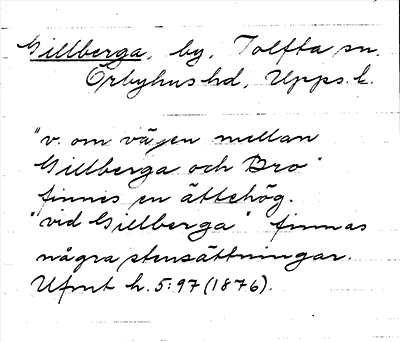 Gillberga, by, Tolfta sn,
Örbyhus hd, Upps. l.
"v. om vägen mellan
Gillberga och Bro"
finnes en ättehög.
"vid Gillberga" finnas
några stensättningar.
Ufmt h. 5:97 (1876).